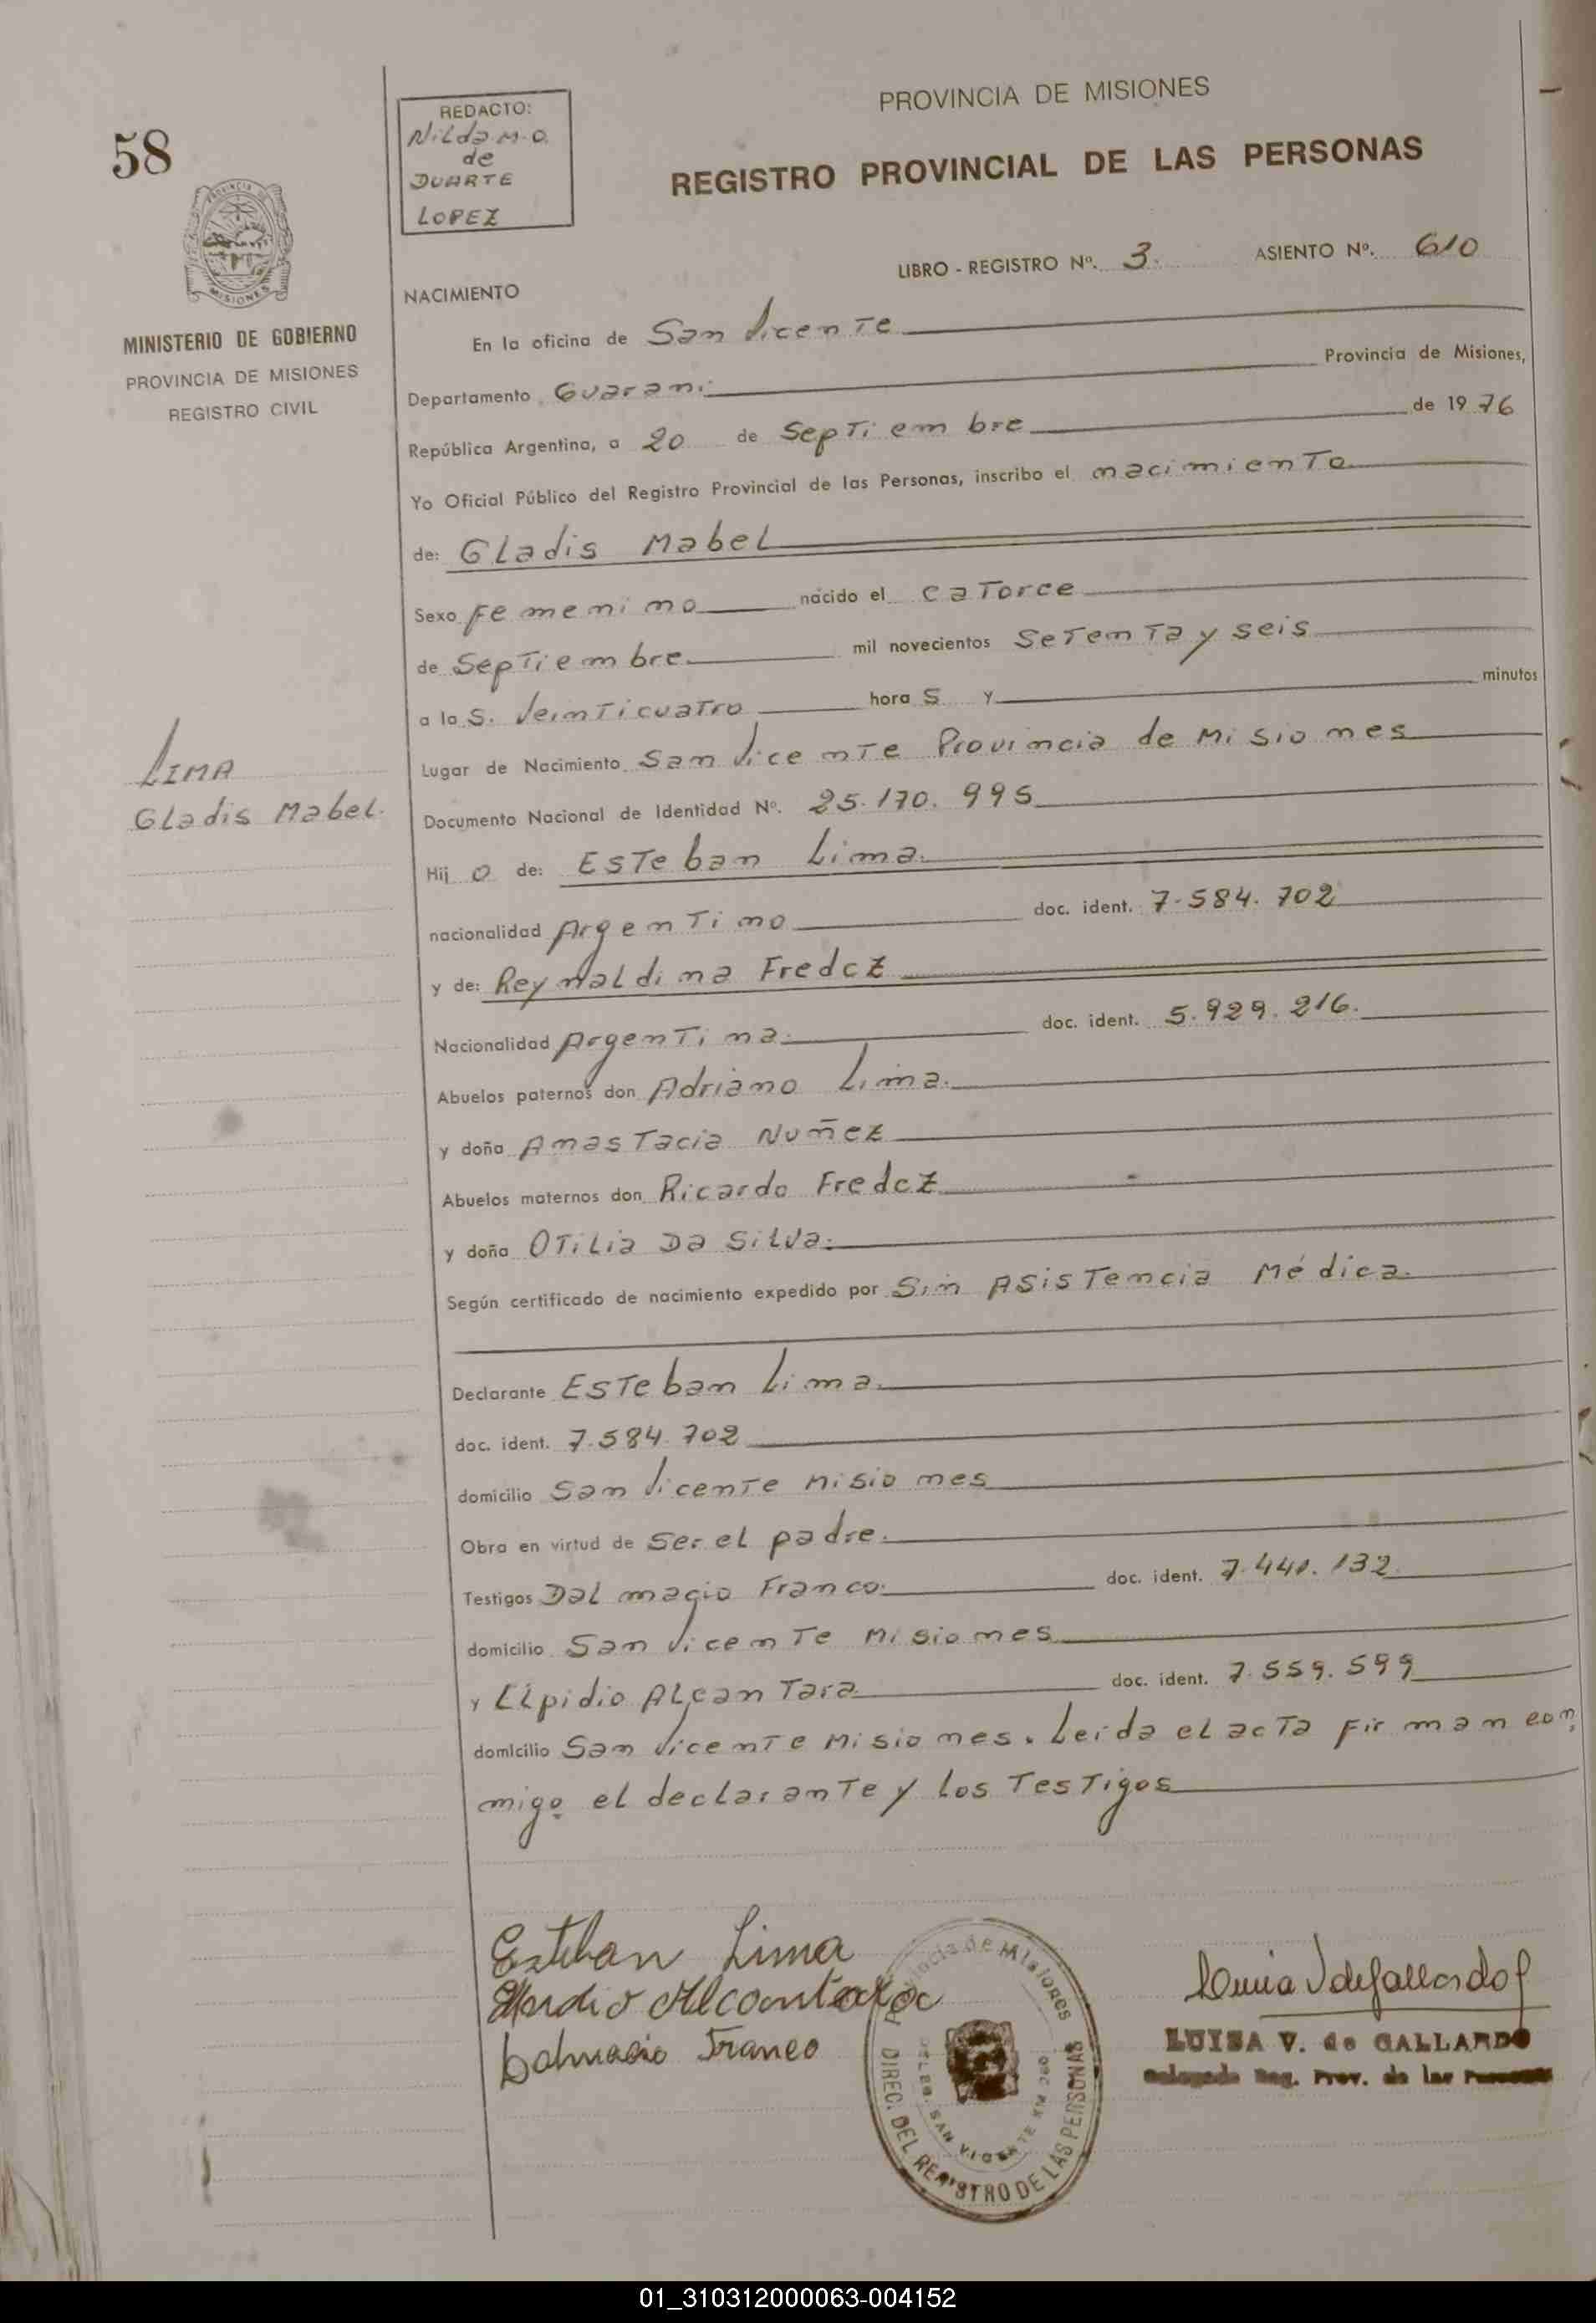 58
REDACTO:
Nilda M.O.
de
DUARTE
LOPEZ
PROVINCIA DE MISIONES
REGISTRO PROVINCIAL DE LAS PERSONAS
LIBRO - REGISTRO Nº. 3. ASIENTO Nº. 610
MISIONES
MINISTERIO DE GOBIERNO
PROVINCIA DE MISIONES
REGISTRO CIVIL
NACIMIENTO
En la oficina de San Vicente
Departamento Guarani Provincia de Misiones,
República Argentina, a 20 de Septiembre de 1976
Yo Oficial Público del Registro Provincial de las Personas, inscribo el nacimiento
de: Gladis Mabel
Sexo Femenino nacido el catorce
de Septiembre mil novecientos Setenta y seis
a las. Veinticuatro horas y minutos
LIMA
Gladis Mabel.
Lugar de Nacimiento San Vicente Provincia de Misiones
Documento Nacional de Identidad Nº. 25.170.995
Hijo de: Esteban Lima.
nacionalidad Argentino doc. ident. 7.584.702
y de: Reynaldina Fredez
Nacionalidad Argentina. doc. ident. 5.929.216.
Abuelos paternos don Adriano Lima.
y doña Anastacia Nuñez
Abuelos maternos don Ricardo Fredez
y doña Otilia Da Silva.
Según certificado de nacimiento expedido por Sin Asistencia Médica.
Declarante Esteban Lima.
doc. ident. 7.584.702
domicilio San Vicente Misiones
Obra en virtud de Ser el padre.
Testigos Dalmacio Franco. doc. ident. 7.440.132
domicilio San Vicente Misiones
y Elpidio Alcantara doc. ident. 7.559.599
domicilio San Vicente Misiones. Leida el acta firman con
migo el declarante y los Testigos
Esteban Lima
Alcantara
Dalmacio Franco
Provincia de Misiones
DIREC. DEL REGISTRO DE LAS PERSONAS
SAN VICENTE KM 260
LUISA V. de GALLARDO
Delegada Reg. Prov. de las Personas
01_310312000063-004152